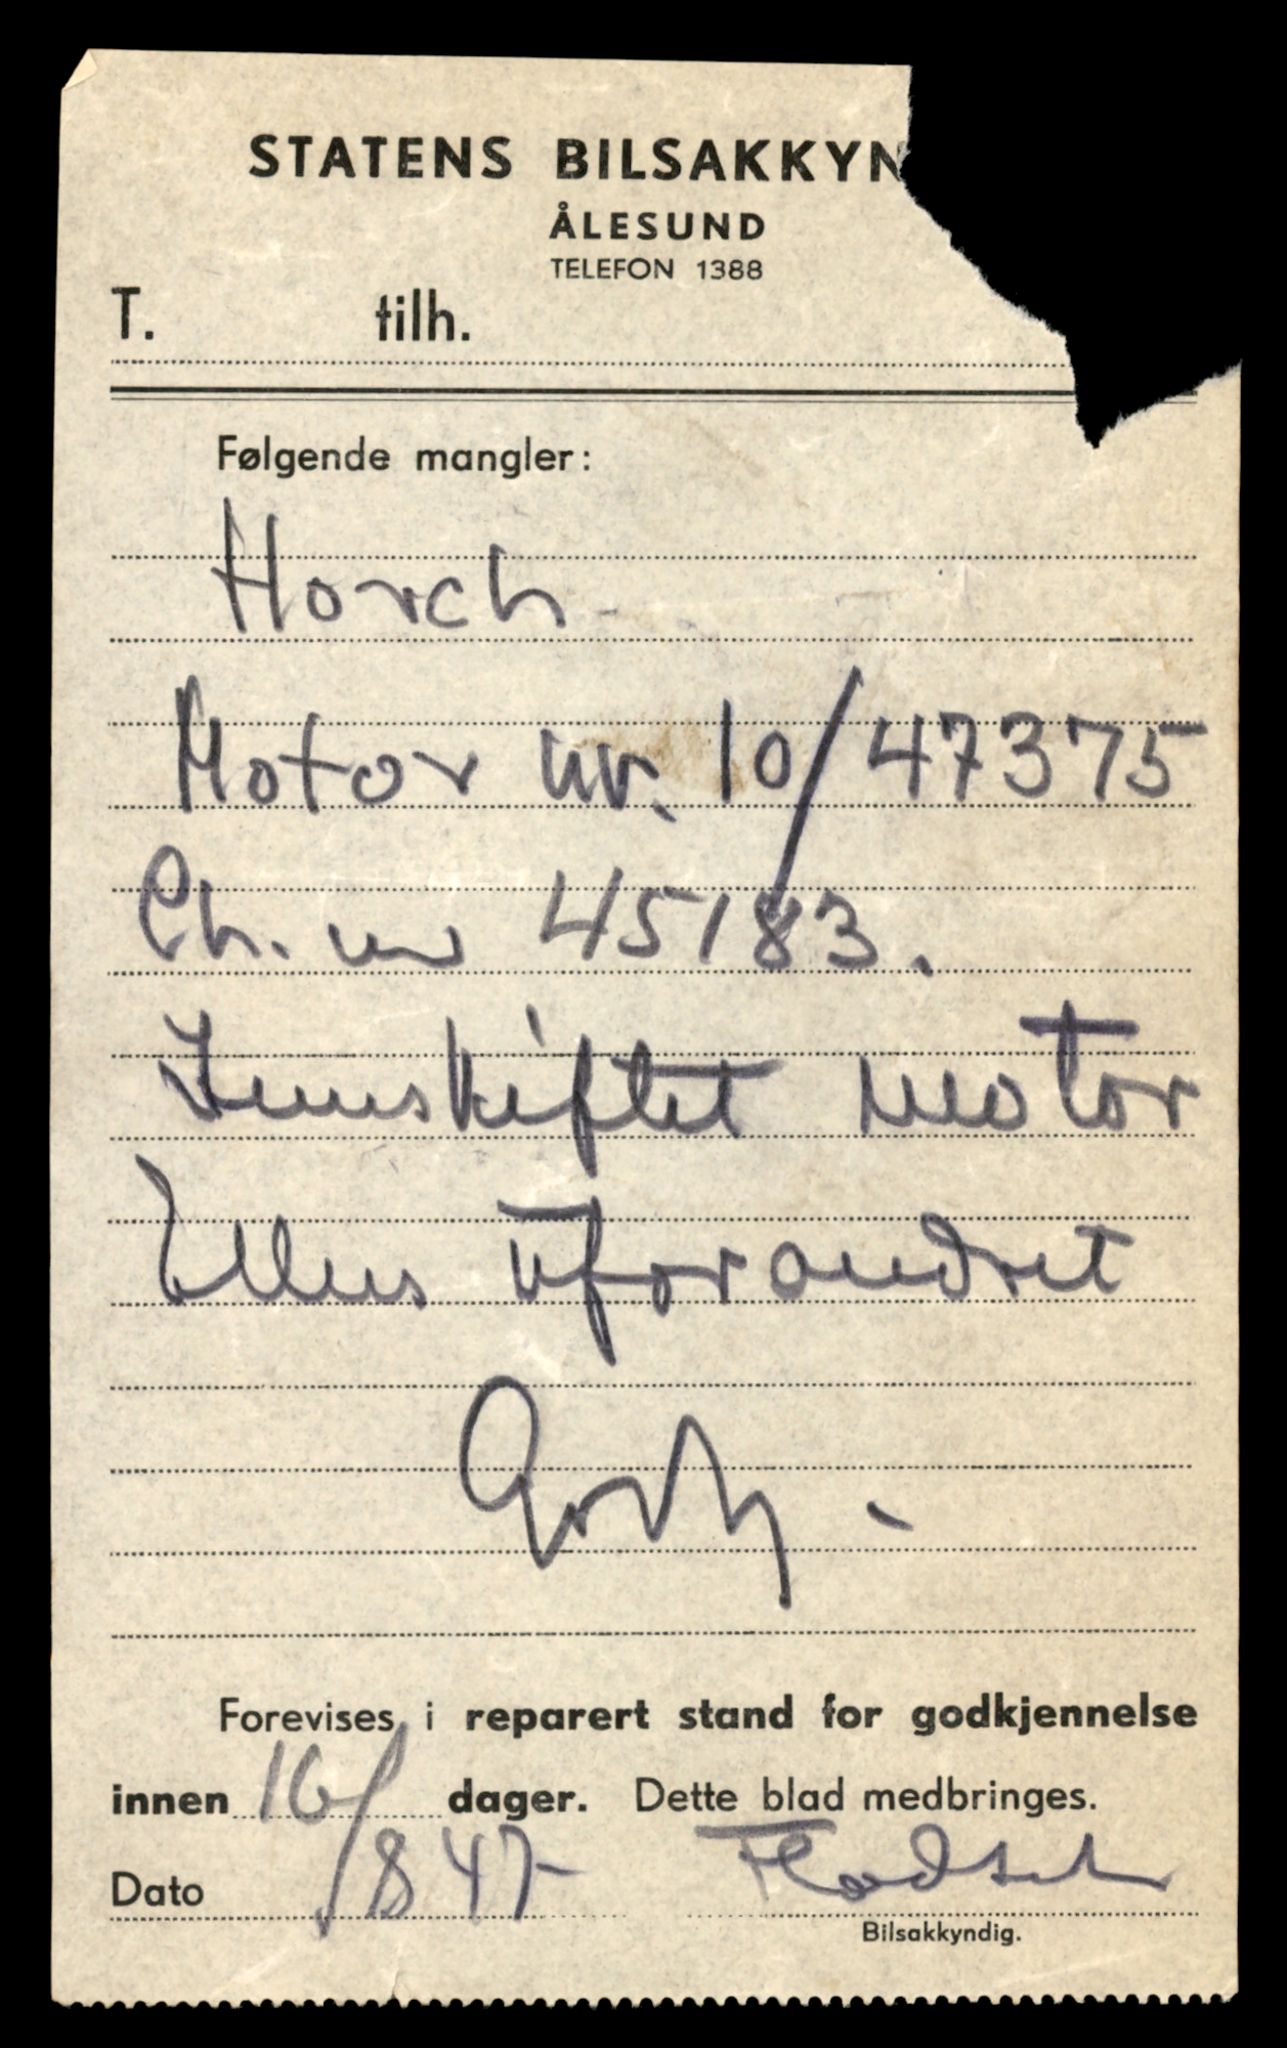 STATENS BILSAKKYN
ÅLESUND
TELEFON 1388
T. tilh.
Følgende mangler:
Horch
Motor nr. 10/47375
Ch. nr 45183.
Innskiftet motor
Ellers uforandret
Godkj -
Forevises i reparert stand for godkjennelse
innen 16/ dager. Dette blad medbringes.
Dato 8 47-
Bilsakkyndig.